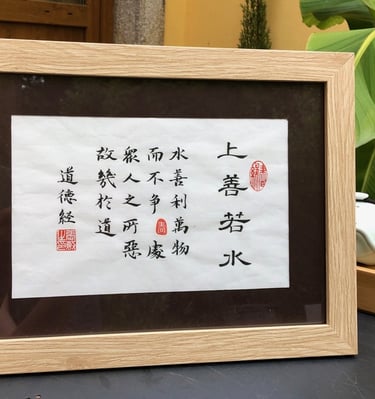 上善若水
水善利萬物
而不争處
衆人之所惡
故幾於道
道德経